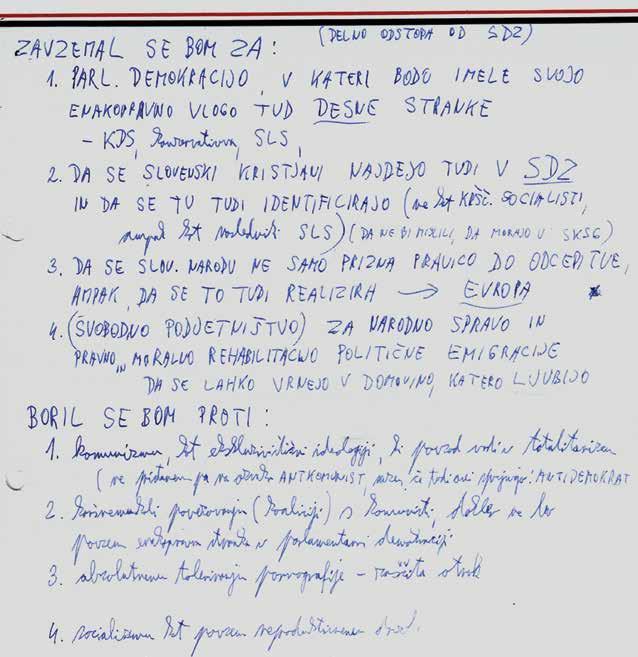 (DELNO ODSTOPA OD SDZ)
ZAVZEMAL SE BOM ZA:
1. PARL. DEMOKRACIJO, V KATERI BODO IMELE SVOJO
ENAKOPRAVNO VLOGO TUD DESNE STRANKE
- KDS, konservativna, SLS,
2. DA SE SLOVENSKI KRISTJANI NAJDEJO TUDI V SDZ
IN DA SE TU TUDI IDENTIFICIRAJO (ne kot KRŠČ. SOCIALISTI,
ampak kot nasledniki SLS) (DA NE BI MISLILI, DA MORAJO V SKSG)
3. DA SE SLOV. NARODU NE SAMO PRIZNA PRAVICO DO ODCEPITVE,
AMPAK, DA SE TO TUDI REALIZIRA → EVROPA *
4. (SVOBODNO PODJETNIŠTVO) ZA NARODNO SPRAVO IN
PRAVNO IN MORALNO REHABILITACIJO POLITIČNE EMIGRACIJE
DA SE LAHKO VRNEJO V DOMOVINO, KATERO LJUBIJO
BORIL SE BOM PROTI:
1. komunizmu, kot ekskluzivistični ideologiji, ki povsod vodi v totalitarizem
(ne pristanem pa na oznako ANTIKOMUNIST, razen, če tudi oni sprejmejo: ANTIDEMOKRAT
2. kakršnemukoli povezovanju (koaliciji) s komunisti, dokler ne bo
povsem enakopravna stranka v parlamentarni demokraciji
3. absolutnemu toleriranju pornografije - zaščita otrok
4. socializmu kot povsem neproduktivnemu